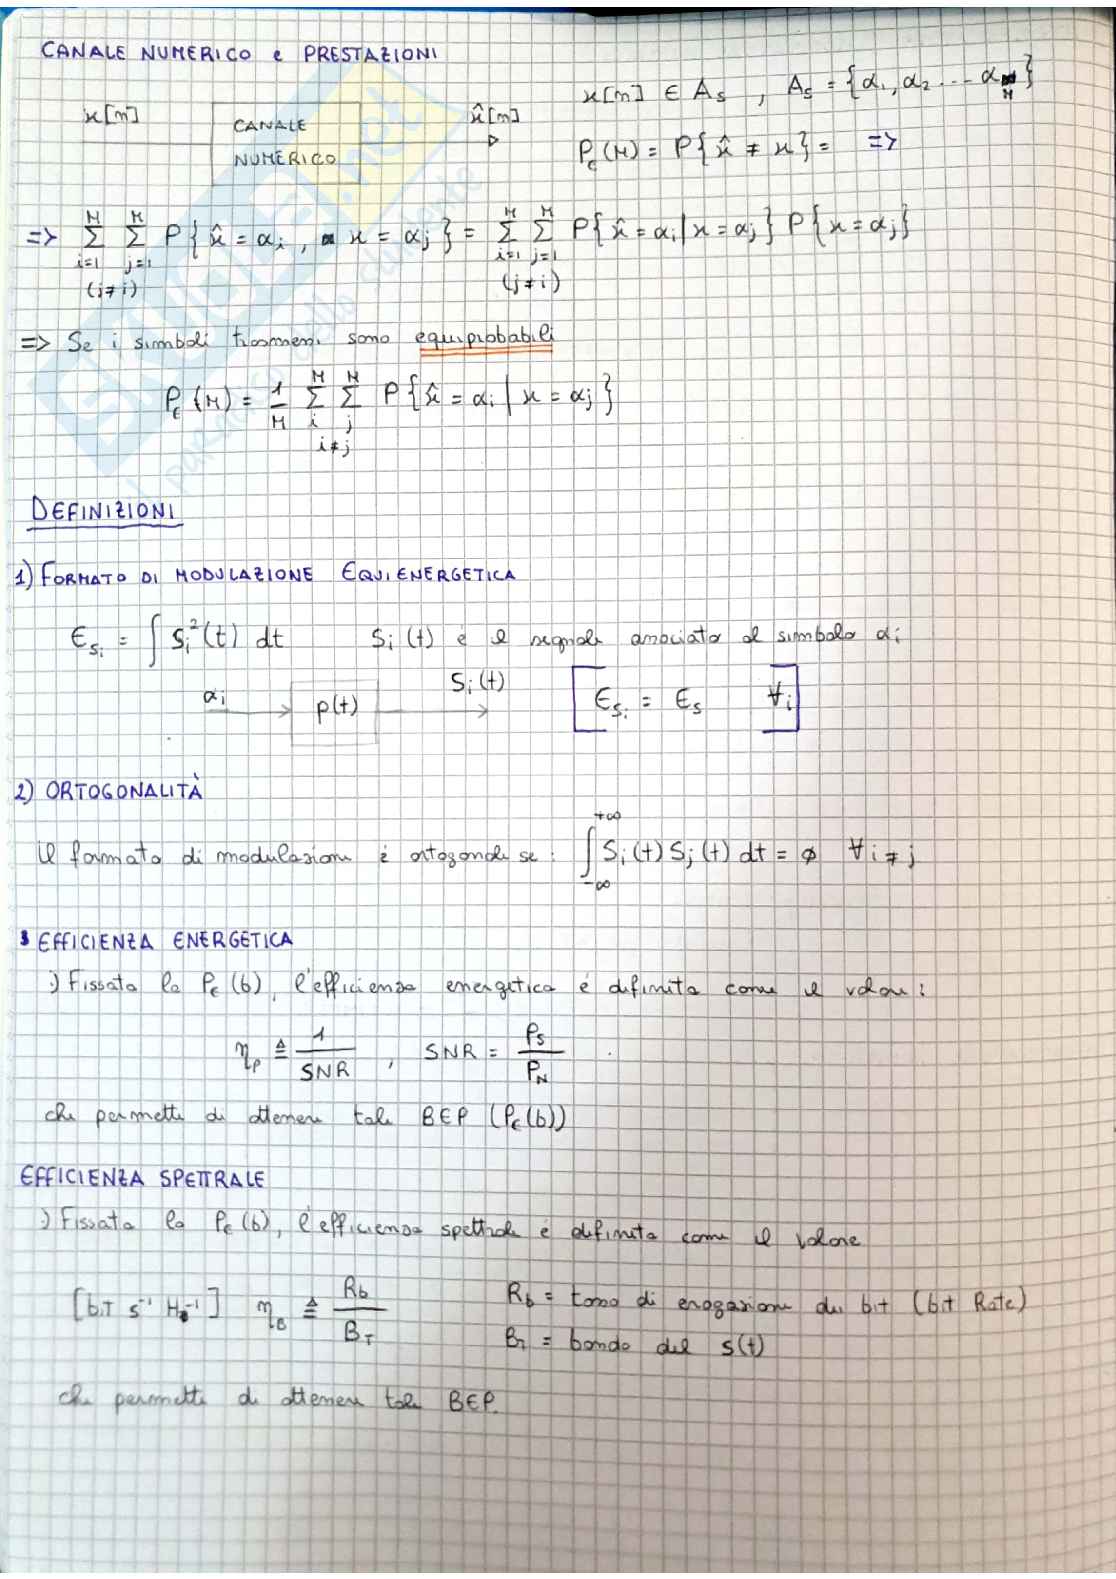 CANALE NUMERICO e PRESTAZIONI
x[n] CANALE NUMERICO x̂[n]
x[n] ∈ A_s , A_s = {α₁, α₂ ... α_M}
P_e(M) = P{x̂ ≠ x} = =>
=> Σ_{i=1}^{M} Σ_{j=1 (j≠i)}^{M} P{x̂ = α_i , x = α_j} = Σ_{i=1}^{M} Σ_{j=1 (j≠i)}^{M} P{x̂ = α_i | x = α_j} P{x = α_j}
=> Se i simboli trasmessi sono equiprobabili
P_e(M) = 1/M Σ_i^M Σ_j^M P{x̂ = α_i | x = α_j}
i≠j
DEFINIZIONI
1) FORMATO DI MODULAZIONE EQUIENERGETICA
E_{s_i} = ∫ s_i²(t) dt S_i(t) è il segnale associato al simbolo α_i
α_i p(t) S_i(t) [E_{s_i} = E_s ∀i]
2) ORTOGONALITÀ
Il formato di modulazione è ortogonale se: ∫_{-∞}^{+∞} S_i(t) S_j(t) dt = ∅ ∀ i ≠ j
EFFICIENZA ENERGETICA
·) Fissata la P_e(b), l'efficienza energetica è definita come il valore:
η_P ≜ 1/SNR , SNR = P_S/P_N
che permette di ottenere tale BEP (P_e(b))
EFFICIENZA SPETTRALE
·) Fissata la P_e(b), l'efficienza spettrale è definita come il valore
[bit s⁻¹ Hz⁻¹] η_B ≜ R_b/B_T R_b = tasso di erogazione dei bit (bit Rate)
B_T = banda del s(t)
che permette di ottenere tale BEP.